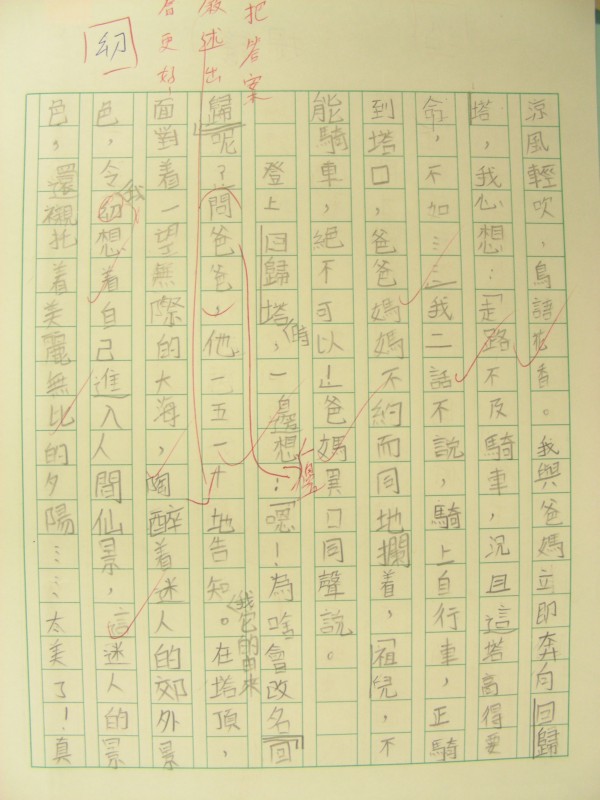 涼風輕吹，鳥語花香。我與爸媽立即奔向回歸
塔，我心想：「走路不及騎車，況且這塔高得要
命，不如……」我二話不說，騎上自行車，正騎
到塔口，爸爸媽媽不約而同地攔着，「祖兒，不
能騎車，絕不可以！」爸媽異口同聲說。
登上回歸塔時，一邊想：「噁！為啥會改名回
歸呢？」問爸爸，他一五一十地告知我它的由來。在塔頂，
面對着一望無際的大海，陶醉着迷人的郊外景
色，令我幻想着自己進入人間仙景，這迷人的景
色，還襯托着美麗無比的夕陽……太美了！真
把答案
敘述出
會更好
幻